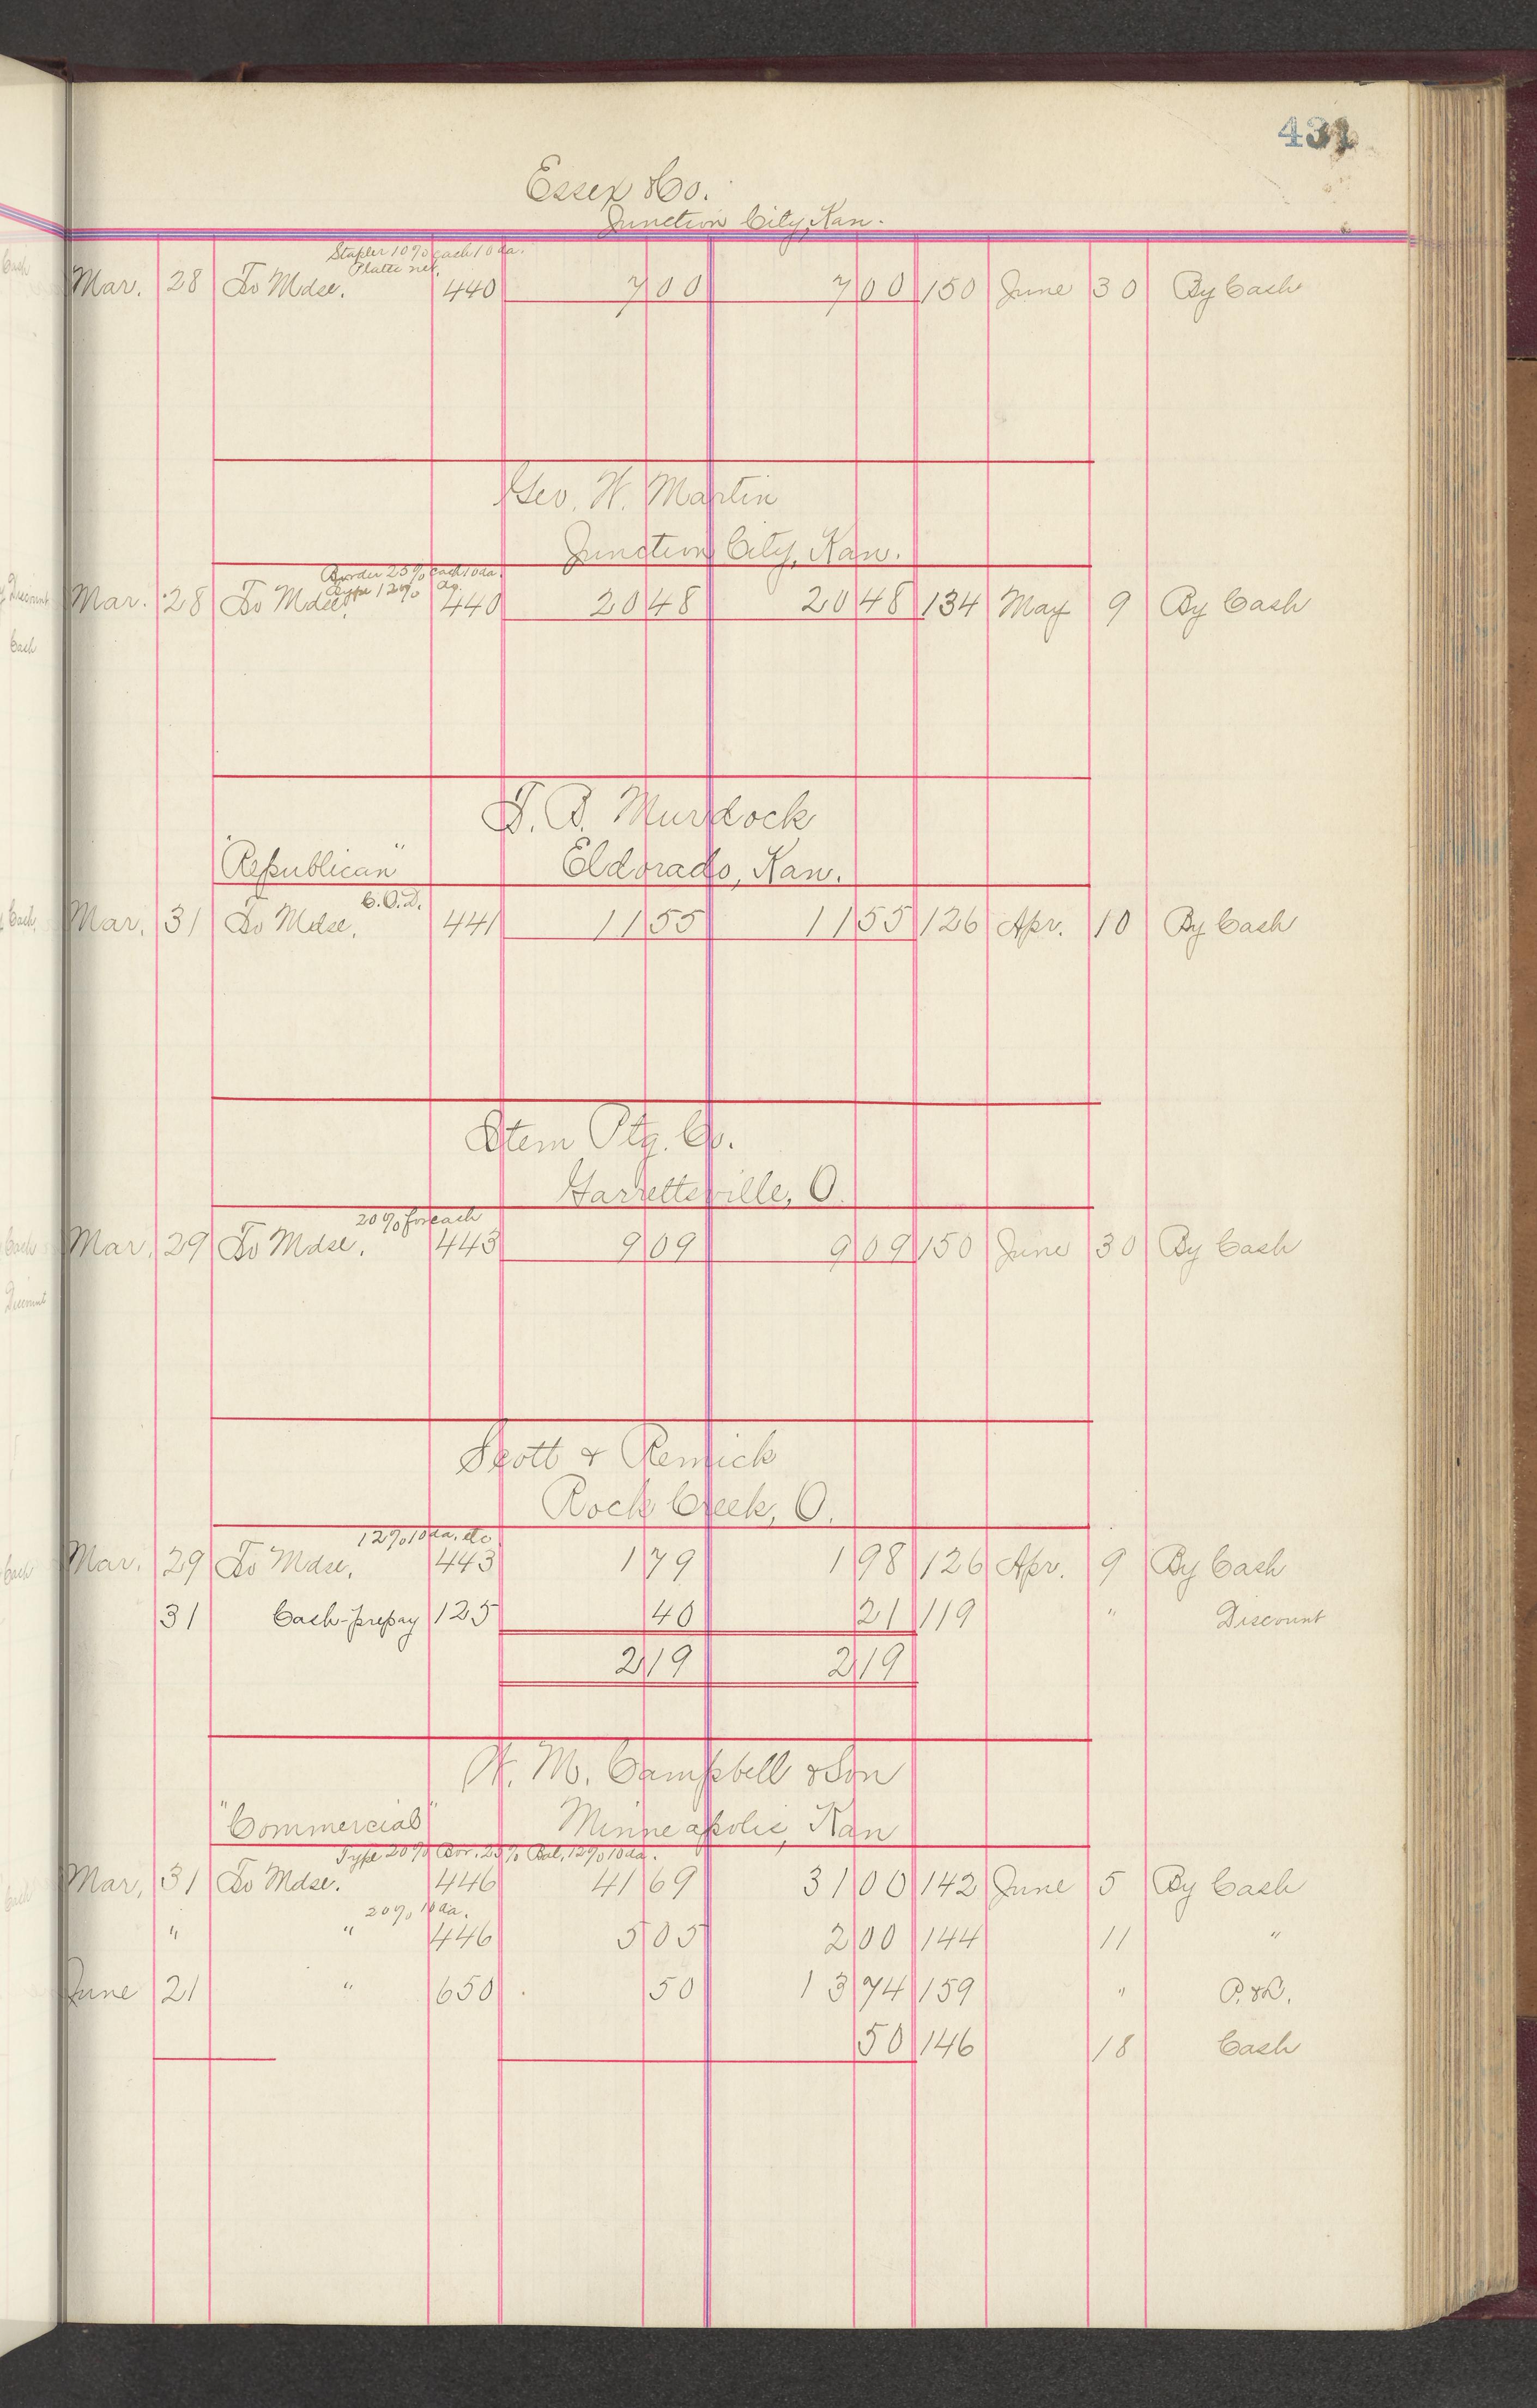 431
Essex & Co.
Junction City, Kan.
Stapler 10% cash 10 da.
Plates net.
Mar. 28 To Mdse. 440 7 00 7 00 150 June 30 By Cash
Geo. W. Martin
Junction City, Kan.
Border 25% cash 10 da.
Type 12% do.
Mar. 28 To Mdse. 440 20 48 20 48 134 May 9 By Cash
T. B. Murdock
"Republican" Eldorado, Kan.
C.O.D.
Mar. 31 To Mdse. 441 11 55 11 55 126 Apr. 10 By Cash
Stem Ptg. Co.
Garrettsville, O.
20% for cash
Mar. 29 To Mdse. 443 9 09 9 09 150 June 30 By Cash
Scott & Remick
Rock Creek, O.
12% 10 da. etc
Mar. 29 To Mdse. 443 1 79 1 98 126 Apr. 9 By Cash
31 Cash-prepay 125 40 21 119 " Discount
2 19 2 19
W. M. Campbell & Son
"Commercial" Minneapolis, Kan
Type 20% Bor. 25% Bal. 12% 10 da.
Mar. 31 To Mdse. 446 41 69 31 00 142 June 5 By Cash
20% 10 da.
" " 446 5 05 2 00 144 11 "
June 21 " 650 50 13 74 159 " P. & L.
50 146 18 Cash